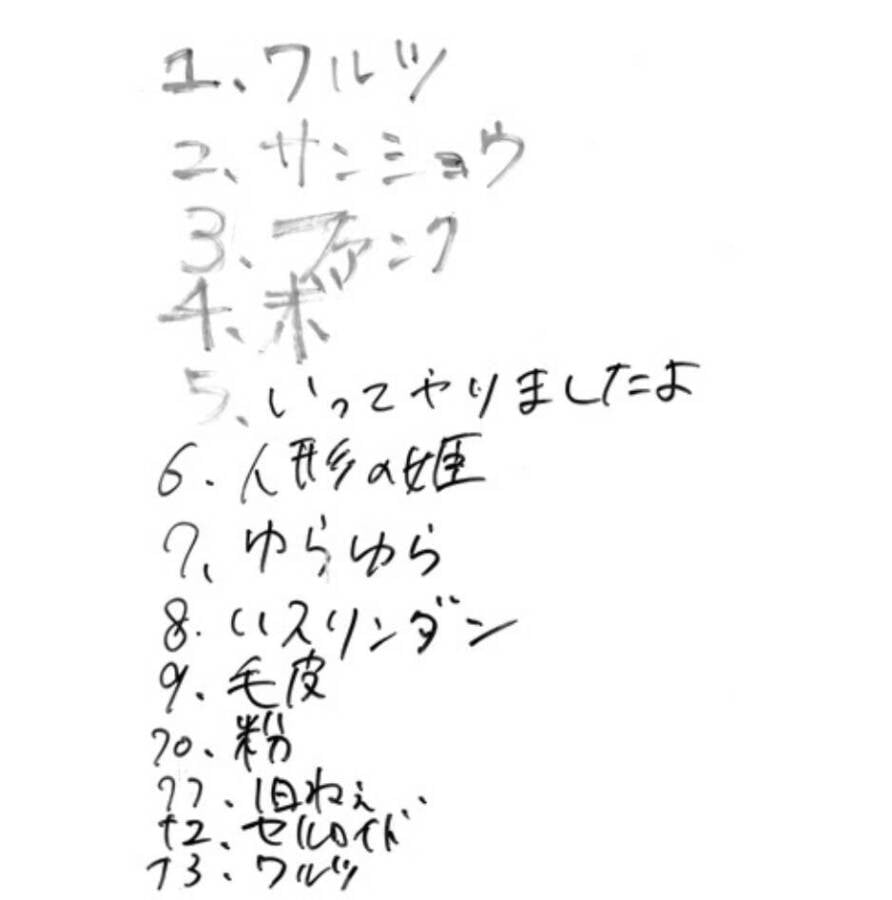 1、ワルツ
2、サンショウ
3、ファンク
4、ボ
5、いってやりましたよ
6.人形の姫
7、ゆらゆら
8.いスリンダン
9.毛皮
10.粉
11.旧ねぇ
12.セルロイド
13.ワルツ